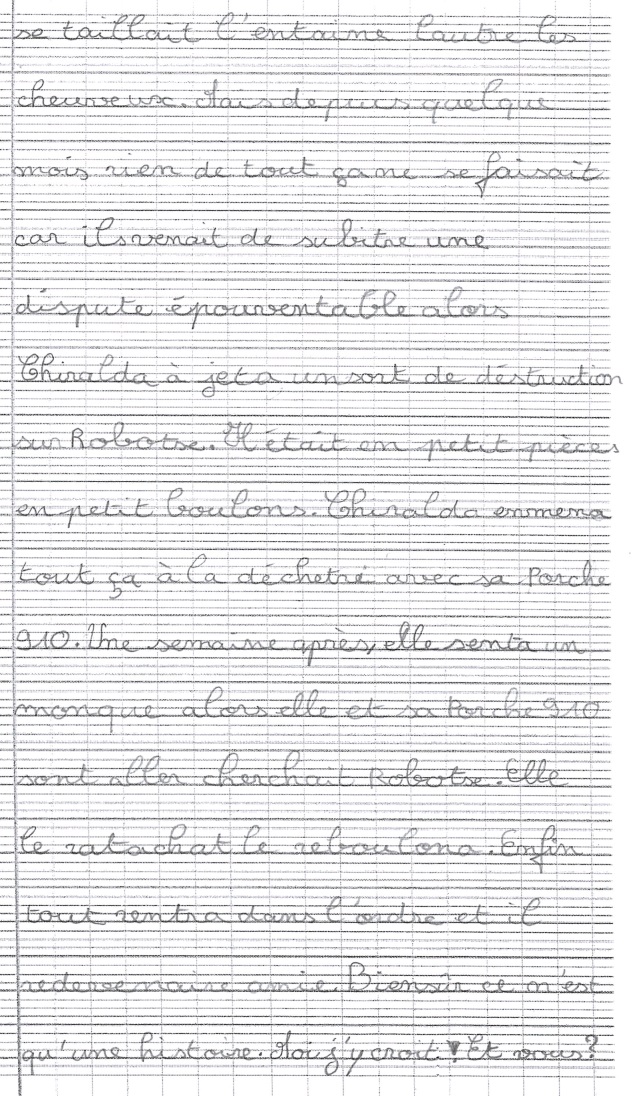 se taillait l'entaine lautre les
cheurveux. Mais depuis quelque
mois rien de tout ça ne se faisait
car ils venait de subitre une
dispute épourventable alors
Chiralda à jeta un sort de déstruction
sur Robotse. Il était en petit pièces
en petit boulons. Chiralda enmena
tout ça à la déchetrie avec sa Porche
910. Une semaine après, elle senta un
monque alors elle et sa Porche 910
sont aller cherchait Robotse. Elle
le ratachat le reboulona. Enfin
tout rentra dans l'ordre et il
redevenaire amie. Biensûr ce n'est
qu'une histoire. Moi j'y croit ! Et vous ?